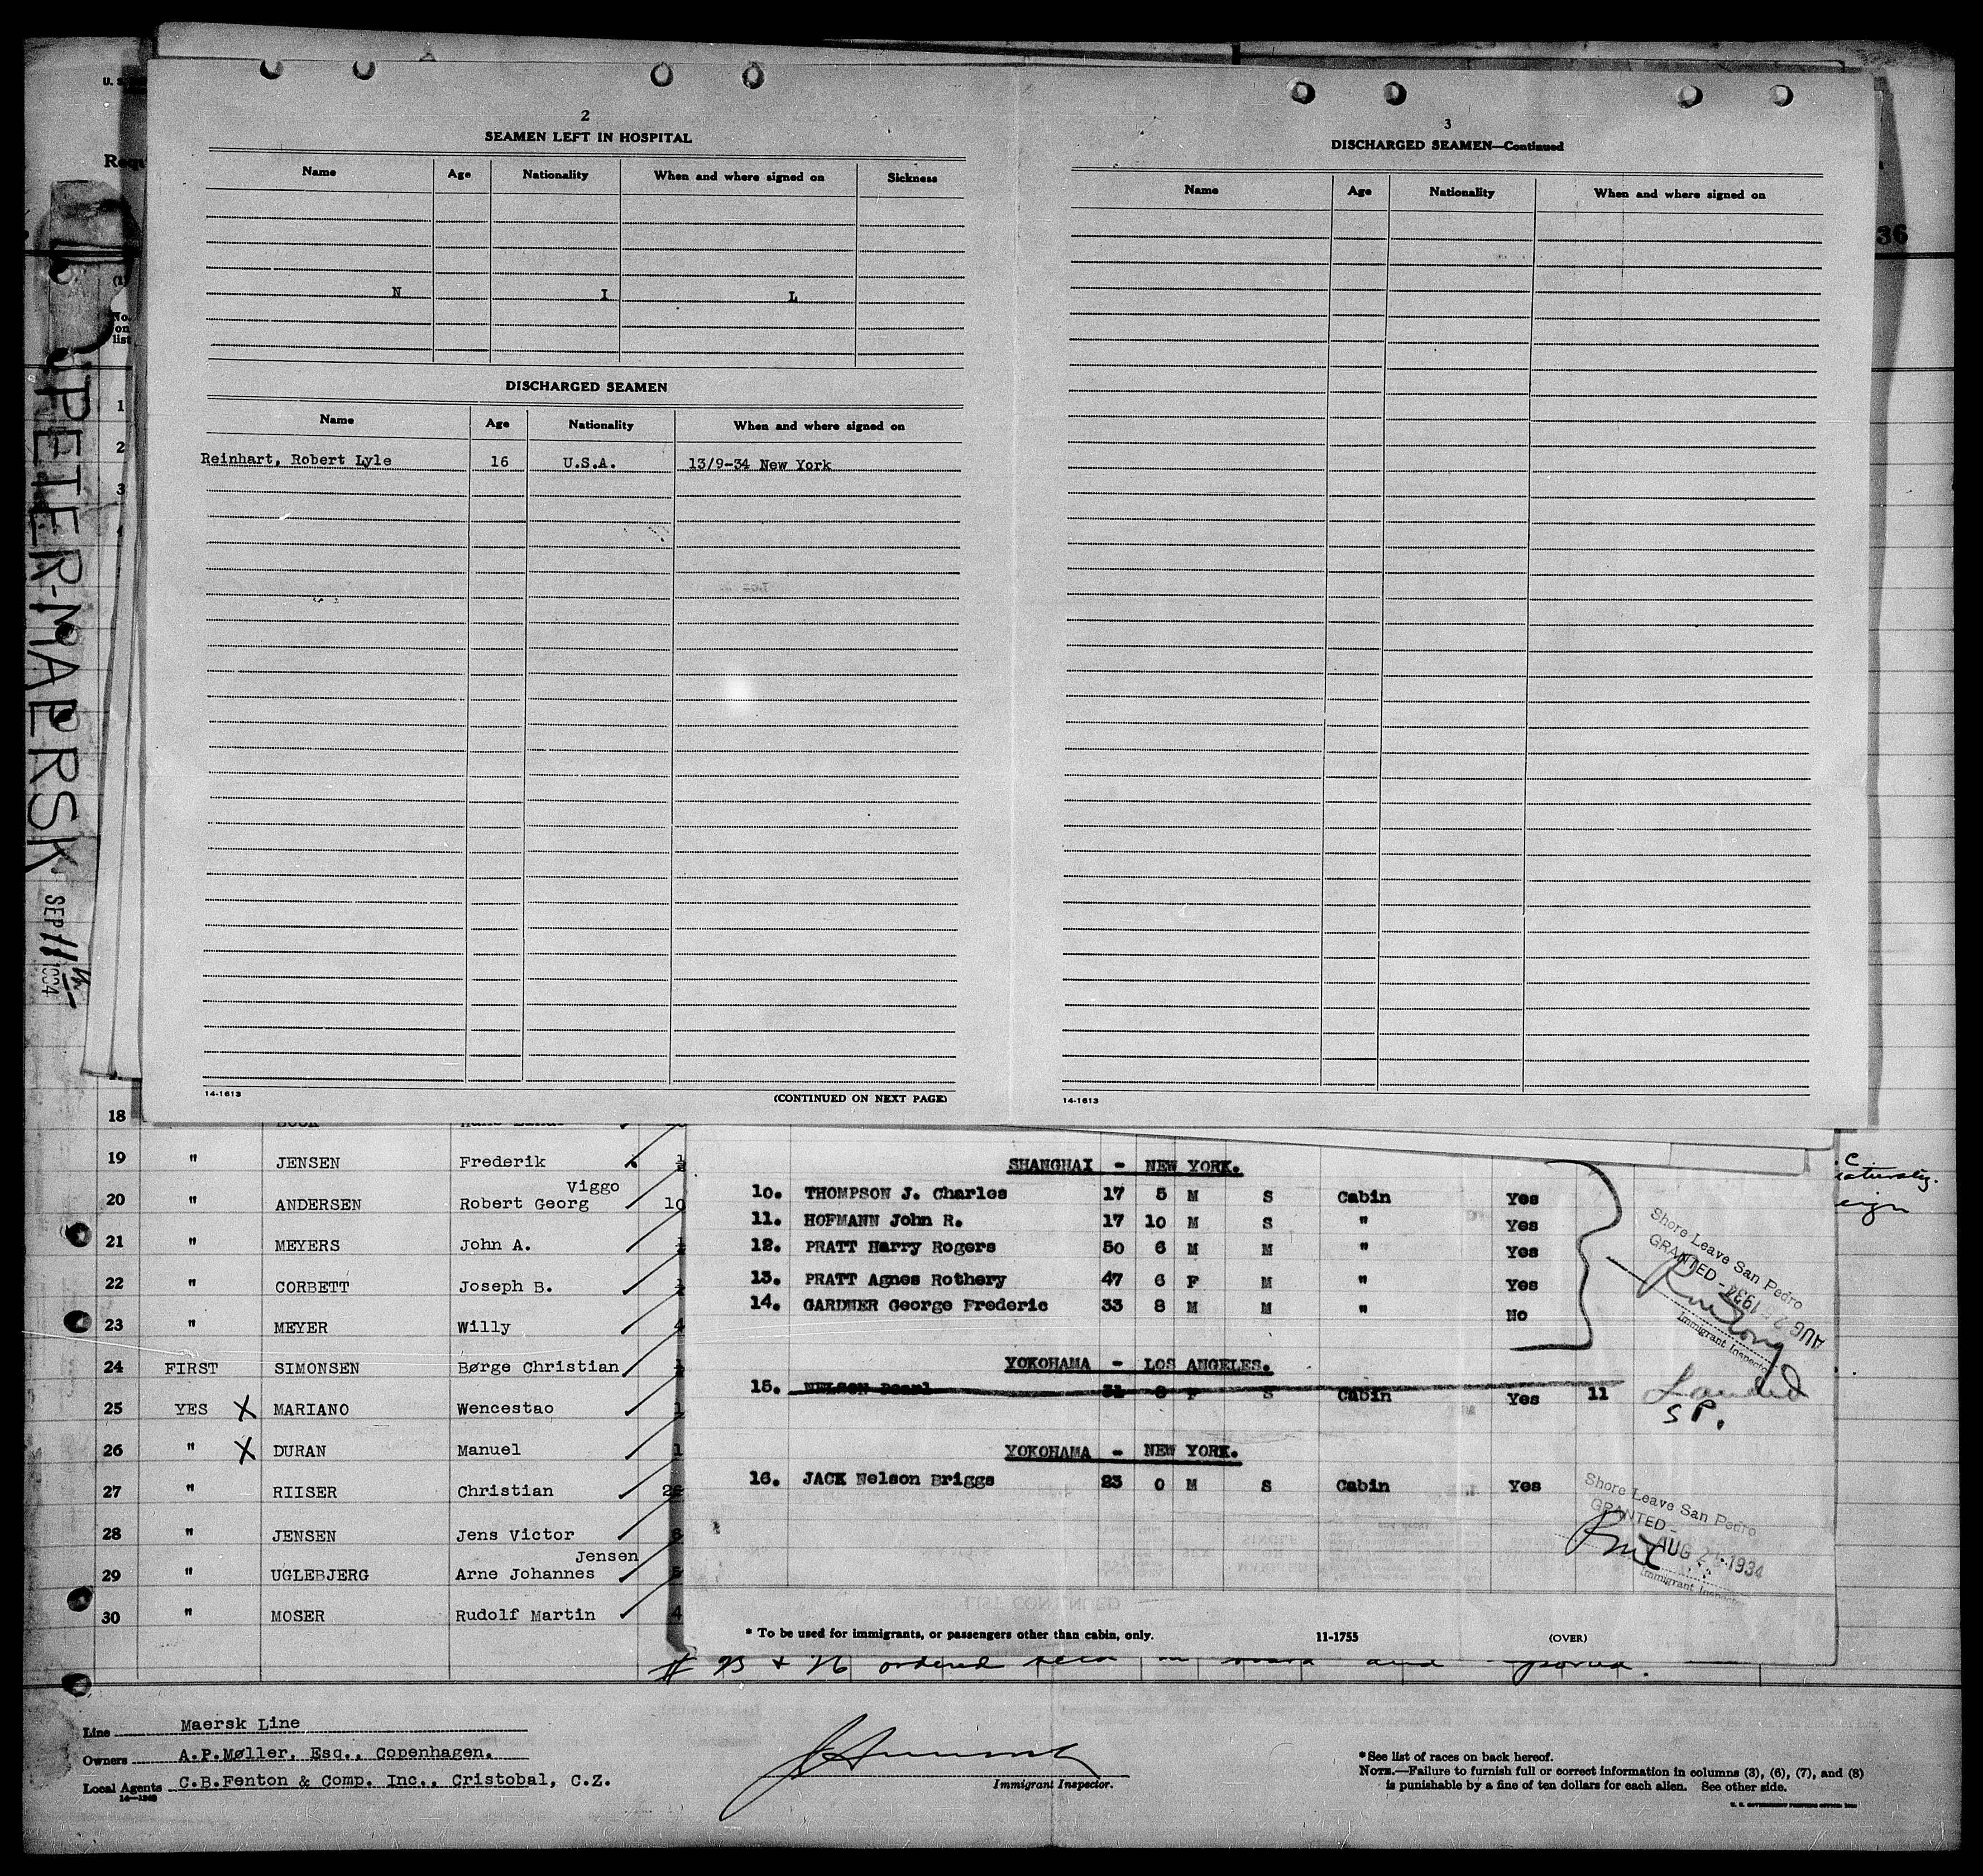 2
SEAMEN LEFT IN HOSPITAL
Name Age Nationality When and where signed on Sickness
N I L
DISCHARGED SEAMEN
Name Age Nationality When and where signed on
Reinhart, Robert Lyle 16 U.S.A. 13/9-34 New York
14-1613 (CONTINUED ON NEXT PAGE)
3
DISCHARGED SEAMEN—Continued
Name Age Nationality When and where signed on
14-1613
36
(1)
No.
on
list
1
2
3
PETER-MAERSK
SEP 11 1934
18
19 " JENSEN Frederik
Viggo
20 " ANDERSEN Robert Georg 10
21 " MEYERS John A.
22 " CORBETT Joseph B.
23 " MEYER Willy 4
24 FIRST SIMONSEN Børge Christian
25 YES X MARIANO Wencestao
26 " X DURAN Manuel 1
27 " RIISER Christian
28 " JENSEN Jens Victor
Jensen
29 " UGLEBJERG Arne Johannes
30 " MOSER Rudolf Martin 4
SHANGHAI - NEW YORK.
10. THOMPSON J. Charles 17 5 M S Cabin Yes
11. HOFMANN John R. 17 10 M S " Yes
12. PRATT Harry Rogers 50 6 M M " Yes
13. PRATT Agnes Rothery 47 6 F M " Yes
14. GARDNER George Frederic 33 8 M M " No
Shore Leave San Pedro
GRANTED - AUG 2 1934
Immigrant Inspector
YOKOHAMA - LOS ANGELES.
15. NELSON Pearl 31 8 F S Cabin Yes 11 Landed
S P.
YOKOHAMA - NEW YORK.
16. JACK Nelson Briggs 23 0 M S Cabin Yes
Shore Leave San Pedro
GRANTED -
AUG 2 1934
Immigrant Inspector
LIST CONTINUED
* To be used for immigrants, or passengers other than cabin, only. 11-1755 (OVER)
# 25 + 26 ordered
Line Maersk Line
Owners A.P.Møller, Esq., Copenhagen.
Local Agents C.B.Fenton & Comp. Inc., Cristobal, C.Z.
Immigrant Inspector.
* See list of races on back hereof.
NOTE.—Failure to furnish full or correct information in columns (3), (6), (7), and (8)
is punishable by a fine of ten dollars for each alien. See other side.